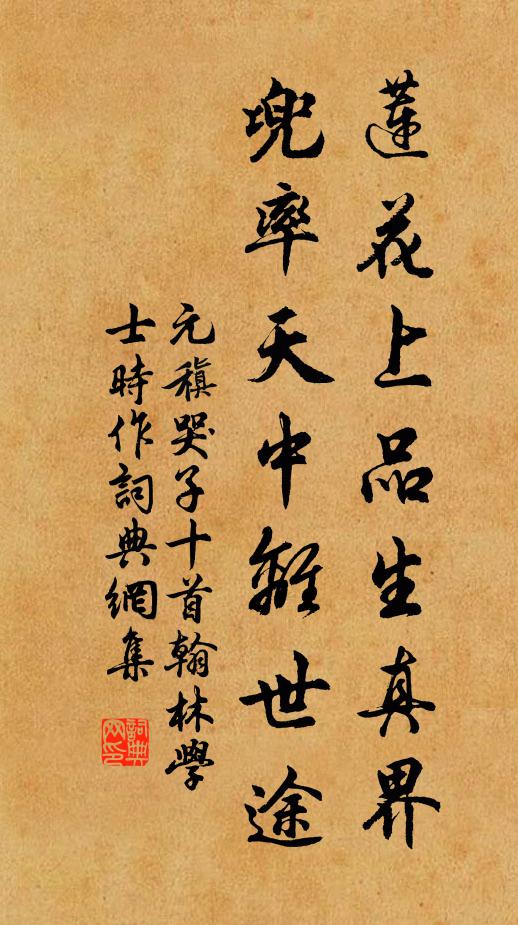 蓮花上品生真界
兜率天中離世途
元稹哭子十首翰林學
士時作詞典網集
詞典
网印